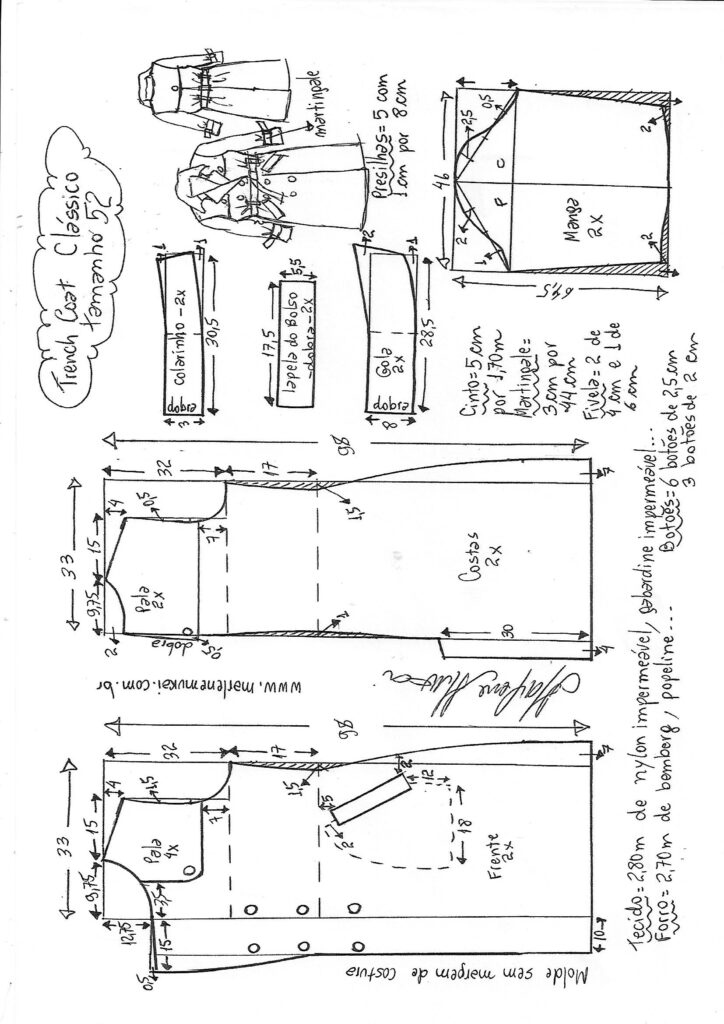 Trench Coat Clássico
tamanho 52
martingale
Presilhas = 5 com
1 cm por
8 cm
dobra
Colarinho - 2x
3
1
1
30,5
17,5
lapela do Bolso
- dobra - 2x
5,5
dobra
Gola
2x
8
2
1
28,5
46
2,5
0,5
2
1
P
C
Manga
2x
2
2
Cinto = 5 cm
por 1,70m
Martingale =
3 cm por
44 cm
Fivela = 2 de
4 cm e 1 de
6 cm
98
32
17
33
9,75
15
4
0,5
7
2
Pala
2x
dobra
0,5
1
1,5
Costas
2x
30
4
7
www.marlenemukai.com.br
98
32
17
33
9,75
15
4
1,5
7
Pala
4x
12,75
3,5
15
0,5
1,5
5
2
2
12
18
Frente
2x
7
10
Molde sem margem de costura
Tecido = 2,80m de nylon impermeável, gabardine impermeável...
Forro = 2,70m de bemberg, popeline...
Botões = 6 botões de 2,5 cm
3 botões de 2 cm